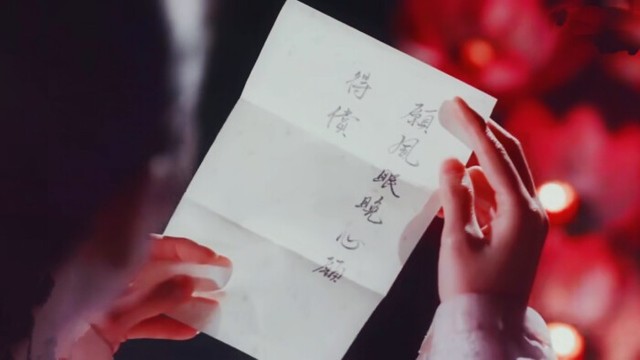 願風眠晚心願
得償